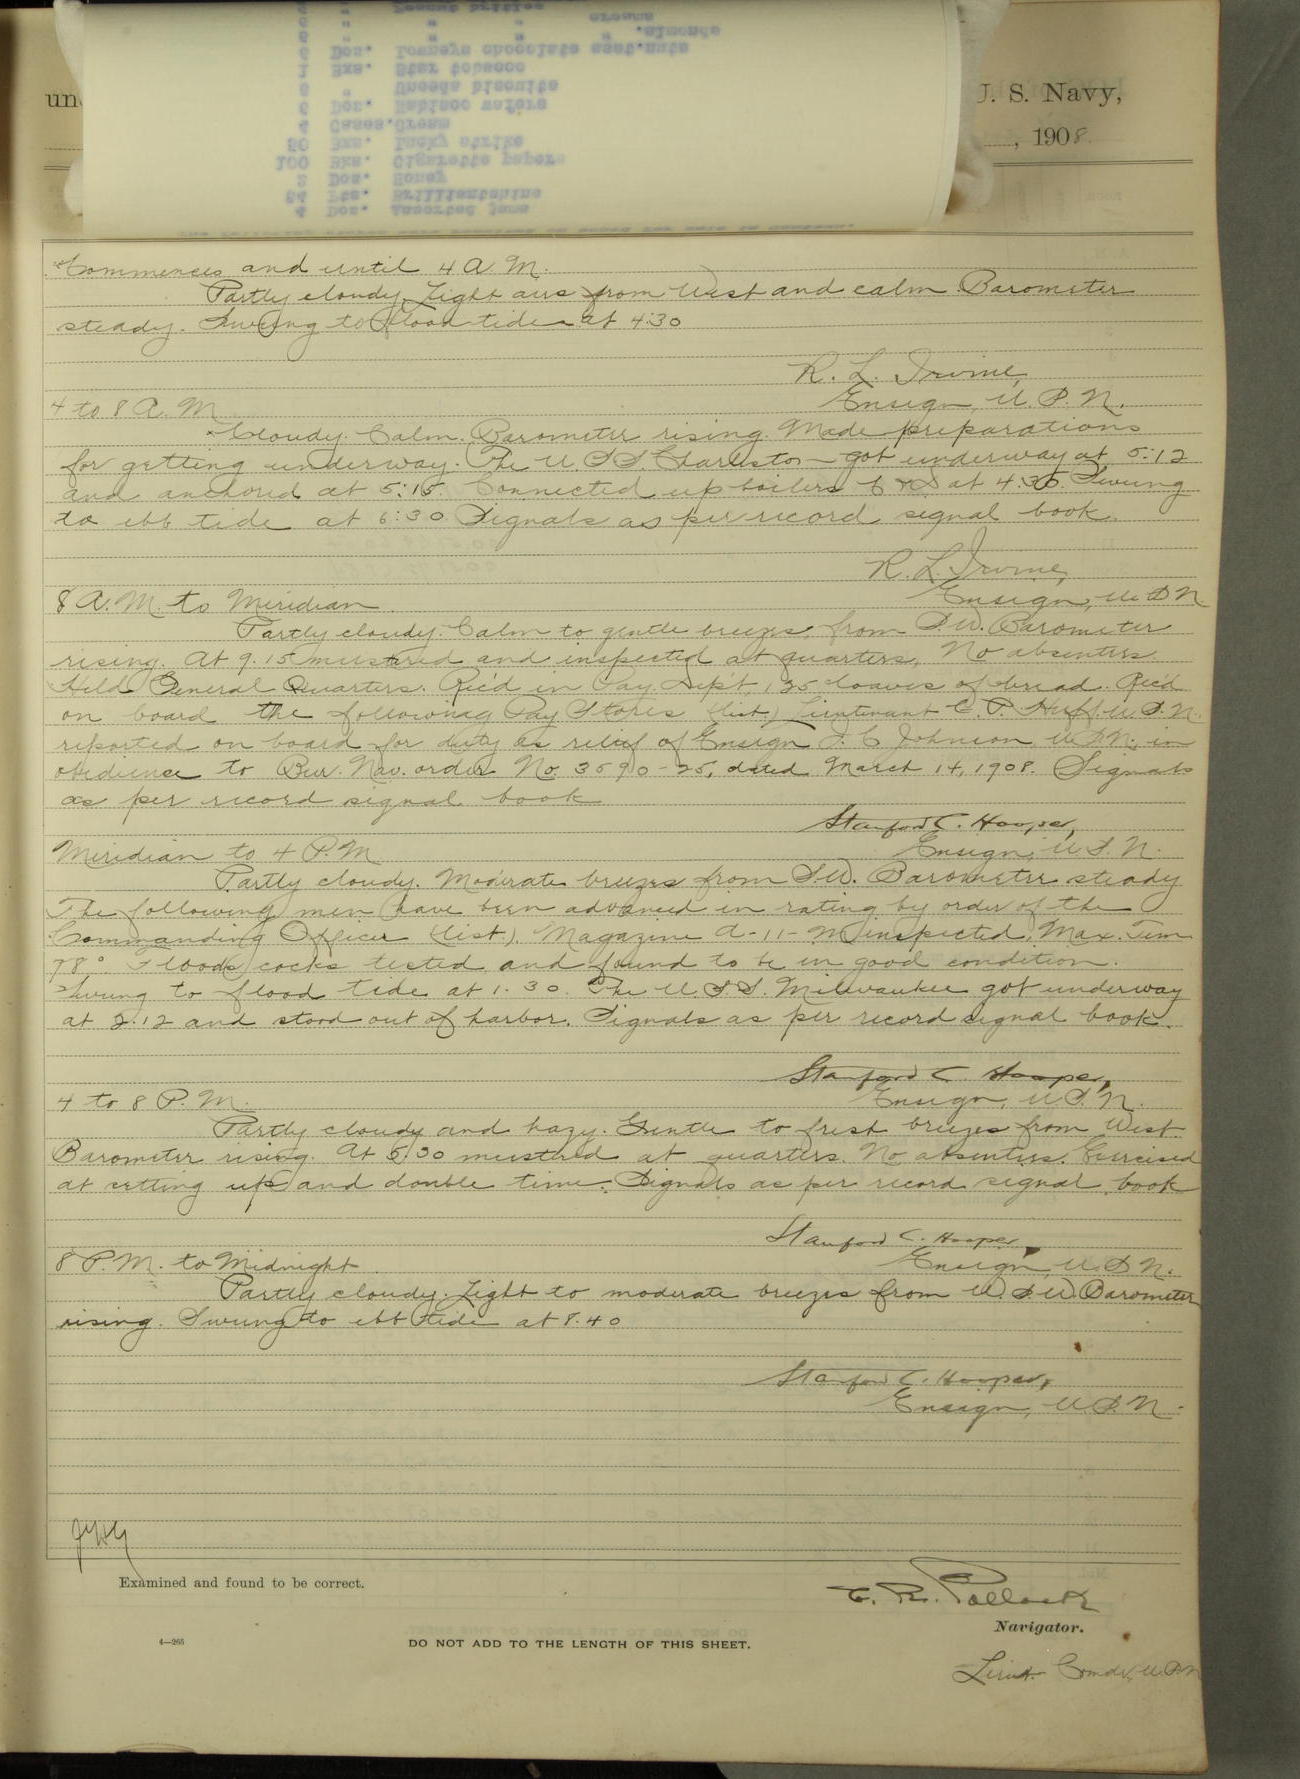 J. S. Navy,
, 1908
Commences and until 4 A.M.
Partly cloudy. Light airs from West and calm. Barometer
steady. Swung to flood tide at 4:30
R. L. Irvine,
Ensign, U.S.N.
4 to 8 A.M.
Cloudy. Calm. Barometer rising. Made preparations
for getting underway. The U.S.S. Charleston got underway at 5:12
and anchored at 5:15. Connected up boilers at 4:30. Swung
to ebb tide at 6:30 Signals as per record signal book.
R. L. Irvine,
Ensign, U.S.N.
8 A.M. to Meridian.
Partly cloudy. Calm to gentle breezes from S.W. Barometer
rising. At 9.15 mustered and inspected at quarters, No absentees.
Held General Quarters. Rec'd in Pay Dep't, 135 loaves of bread. Rec'd
on board the following Pay Stores (list.) Lieutenant C. P. Huff U.S.N.
reported on board for duty as relief of Ensign I. C. Johnson U.S.N. in
obedience to Bur. Nav. order No. 3590-25, dated March 14, 1908. Signals
as per record signal book
Stanford C. Hooper,
Ensign, U.S.N.
Meridian to 4 P.M.
Partly cloudy. Moderate breezes from S.W. Barometer steady
The following men have been advanced in rating by order of the
Commanding Officer (list). Magazine A-11-M inspected. Max. Tem
78°. Floods cocks tested and found to be in good condition.
Swung to flood tide at 1.30. The U.S.S. Milwaukee got underway
at 2.12 and stood out of harbor. Signals as per record signal book.
Stanford C. Hooper,
Ensign, U.S.N.
4 to 8 P.M.
Partly cloudy and hazy. Gentle to fresh breezes from West.
Barometer rising. At 5:30 mustered at quarters. No absentees. Exercised
at setting up and double time. Signals as per record signal book
Stanford C. Hooper,
Ensign, U.S.N.
8 P.M. to Midnight
Partly cloudy. Light to moderate breezes from W.S.W. Barometer
rising. Swung to ebb tide at 8.40
Stanford C. Hooper,
Ensign, U.S.N.
Examined and found to be correct.
C. R. Pollock
Navigator.
4—265
DO NOT ADD TO THE LENGTH OF THIS SHEET.
Lieut. Comdr, U.S.N